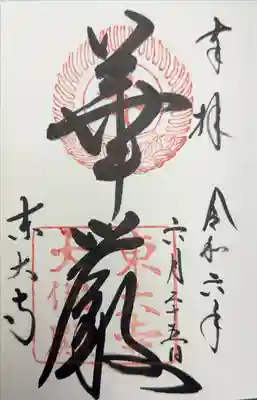 奉拝
令和六年
六月二十五日
華厳
東大寺